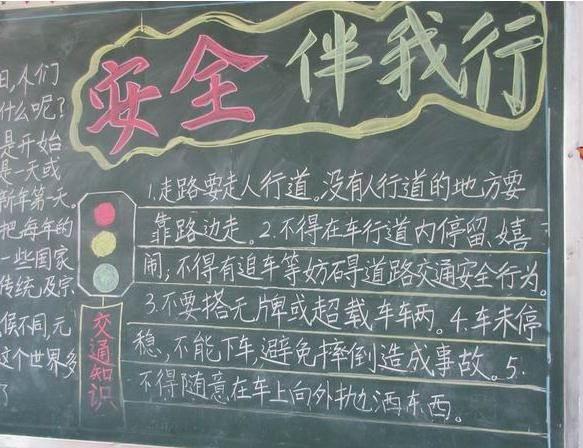 安全伴我行
日,人们
什么呢?
是开始
是一天或
新年第一天。
把每年的
一些国家
传统及宗
候不同,元
这个世界多
了
交通知识
1.走路要走人行道。没有人行道的地方要
靠路边走。2.不得在车行道内停留、嬉
闹;不得有追车等妨碍道路交通安全行为。
3.不要搭无牌或超载车车两。4.车未停
稳,不能下车,避免摔倒造成事故。5.
不得随意在车上向外抛洒东西。